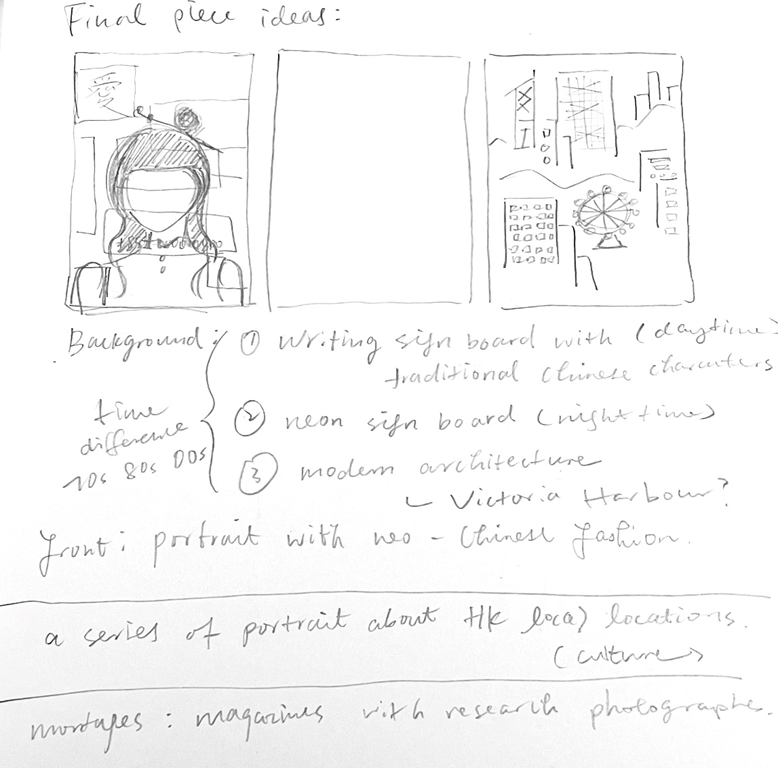 Final piece ideas:
愛
Background: ① writing sign board with (daytime)
traditional Chinese characters
time
difference
70s 80s 00s
② neon sign board (nighttime)
③ modern architecture
Victoria Harbour?
front: portrait with neo-Chinese fashion.
a series of portrait about HK local locations.
(culture)
montages: magazines with research photographs.